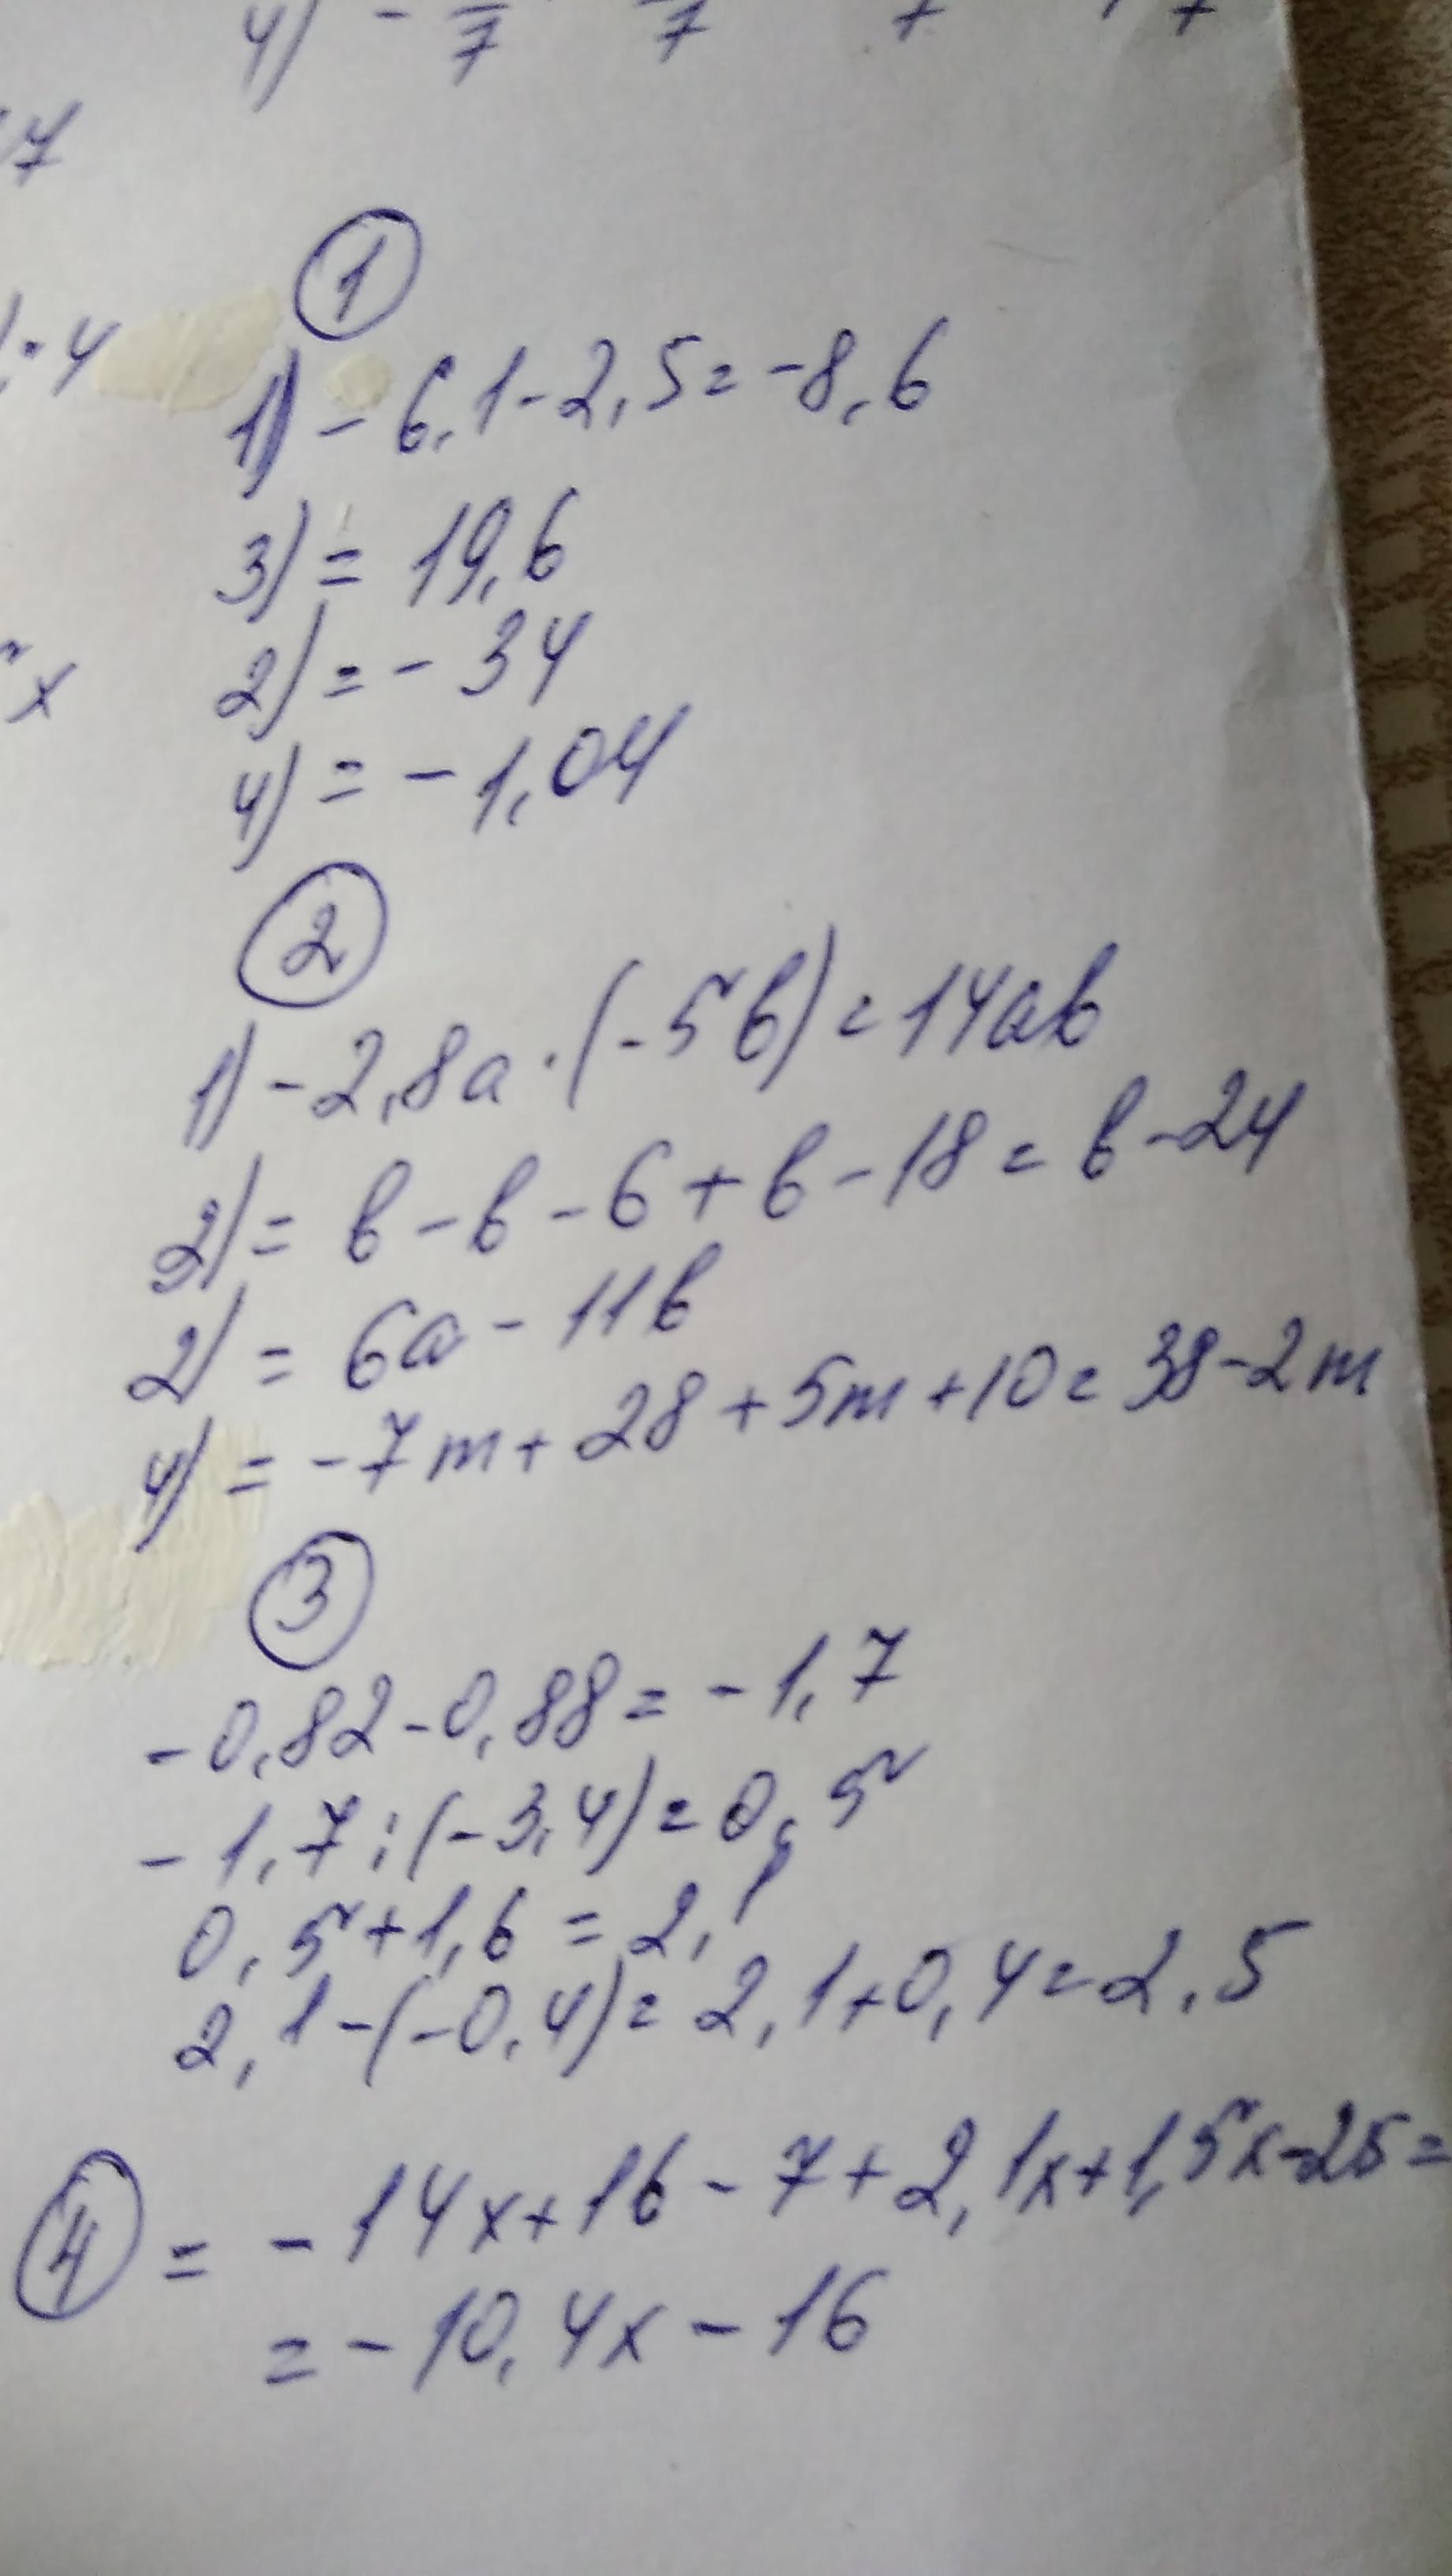 4) - 7 7 7 7
7
①
:4
1) - 6,1 - 2,5 = -8,6
3) = 19,6
2) = - 34
x
4) = - 1,04
②
1) - 2,8a · (-5b) = 14ab
3) = b - b - 6 + b - 18 = b - 24
2) = 6a - 11b
4) = - 7m + 28 + 5m + 10 = 38 - 2m
③
- 0,82 - 0,88 = - 1,7
- 1,7 : (-3,4) = 0,5
0,5 + 1,6 = 2,1
2,1 - (-0,4) = 2,1 + 0,4 = 2,5
④ = - 14x + 16 - 7 + 2,1x + 1,5x - 25 =
= - 10,4x - 16